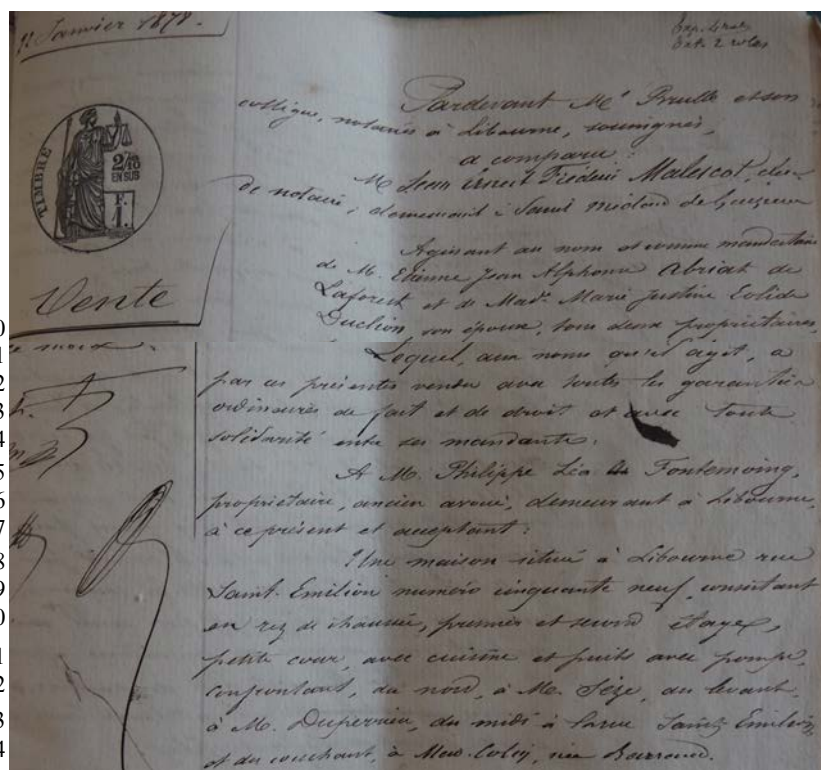 9 Janvier 1878.
Exp. 4 roles
Ext. 2 roles
TIMBRE
2/10
EN SUS
F.
1.
Vente
Pardevant Me Brulle et son
collègue, notaires à Libourne, soussignés,
a comparu :
M. Jean Ernest Frédéric Malescot, clerc
de notaire, demeurant à Saint Médard de Guizières
Agissant au nom et comme mandataire
de M. Etienne Jean Alphonse Abriat de
Laforest et de Made Marie Justine Evelide
Duchion, son épouse, tous deux propriétaires,
Lequel, aux noms qu'il agit, a
par ces présentes vendu avec toutes les garanties
ordinaires de fait et de droit et avec toute
solidarité entre ses mandants.
A M. Philippe Léo de Fontemoing,
propriétaire, ancien avoué, demeurant à Libourne,
à ce présent et acceptant :
Une maison située à Libourne rue
Saint-Emilion numéro cinquante neuf, consistant
en rez de chaussée, premier et second étages,
petite cour, avec cuisine et puits avec pompe,
confrontant, du nord, à M. Sèze, au levant,
à M. Duperrieu, du midi à la rue Saint Emilion,
et du couchant, à Mad. Colin, née Barraud.
0
1
2
3
4
5
6
7
8
9
0
1
2
3
4